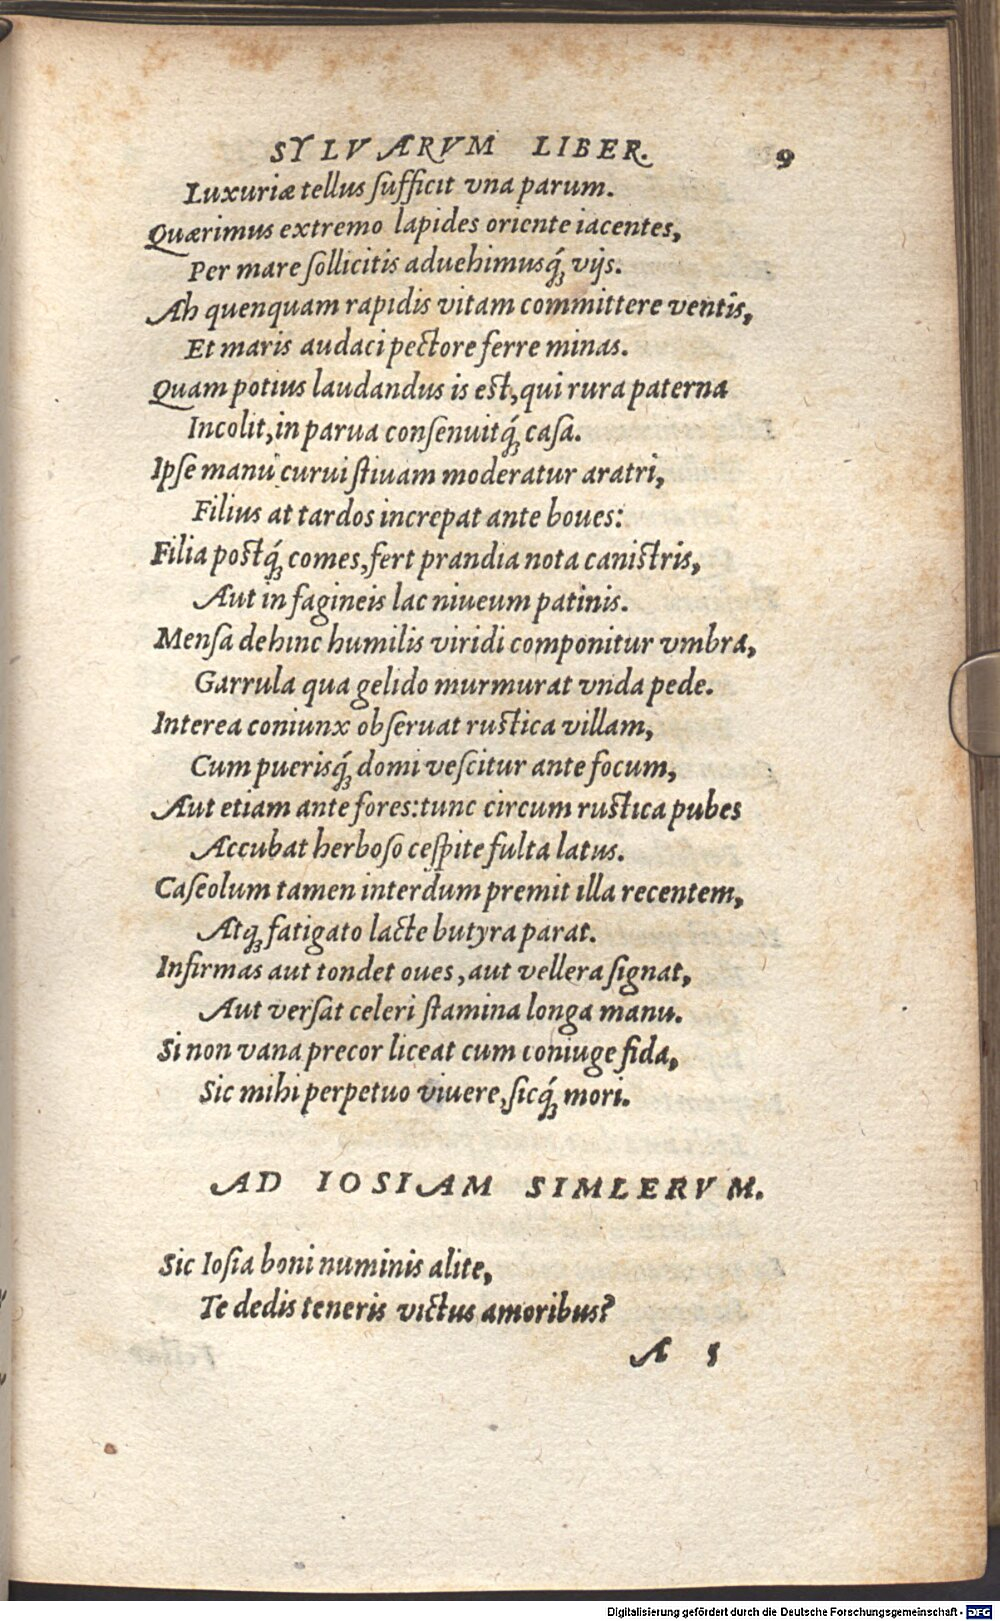 SYLVARVM LIBER. 9
Luxuriæ tellus ſufficit vna parum.
Quærimus extremo lapides oriente iacentes,
Per mare ſollicitis aduehimusq́ꝫ vijs.
Ah quenquam rapidis vitam committere ventis,
Et maris audaci pectore ferre minas.
Quam potius laudandus is est, qui rura paterna
Incolit, in parua conſenuitq́ꝫ caſa.
Ipſe manu curui ſtiuam moderatur aratri,
Filius at tardos increpat ante boues:
Filia postq́ꝫ comes, fert prandia nota canistris,
Aut in fagineis lac niueum patinis.
Menſa dehinc humilis viridi componitur vmbra,
Garrula qua gelido murmurat vnda pede.
Interea coniunx obſeruat rustica villam,
Cum puerisq́ꝫ domi veſcitur ante focum,
Aut etiam ante fores: tunc circum rustica pubes
Accubat herboſo ceſpite fulta latus.
Caſeolum tamen interdum premit illa recentem,
Atqꝫ fatigato lacte butyra parat.
Infirmas aut tondet oues, aut vellera ſignat,
Aut verſat celeri ſtamina longa manu.
Si non vana precor liceat cum coniuge fida,
Sic mihi perpetuo viuere, ſicq́ꝫ mori.
AD IOSIAM SIMLERVM.
Sic Ioſia boni numinis alite,
Te dedis teneris victus amoribus?
A 5
Digitalisierung gefördert durch die Deutsche Forschungsgemeinschaft - DFG